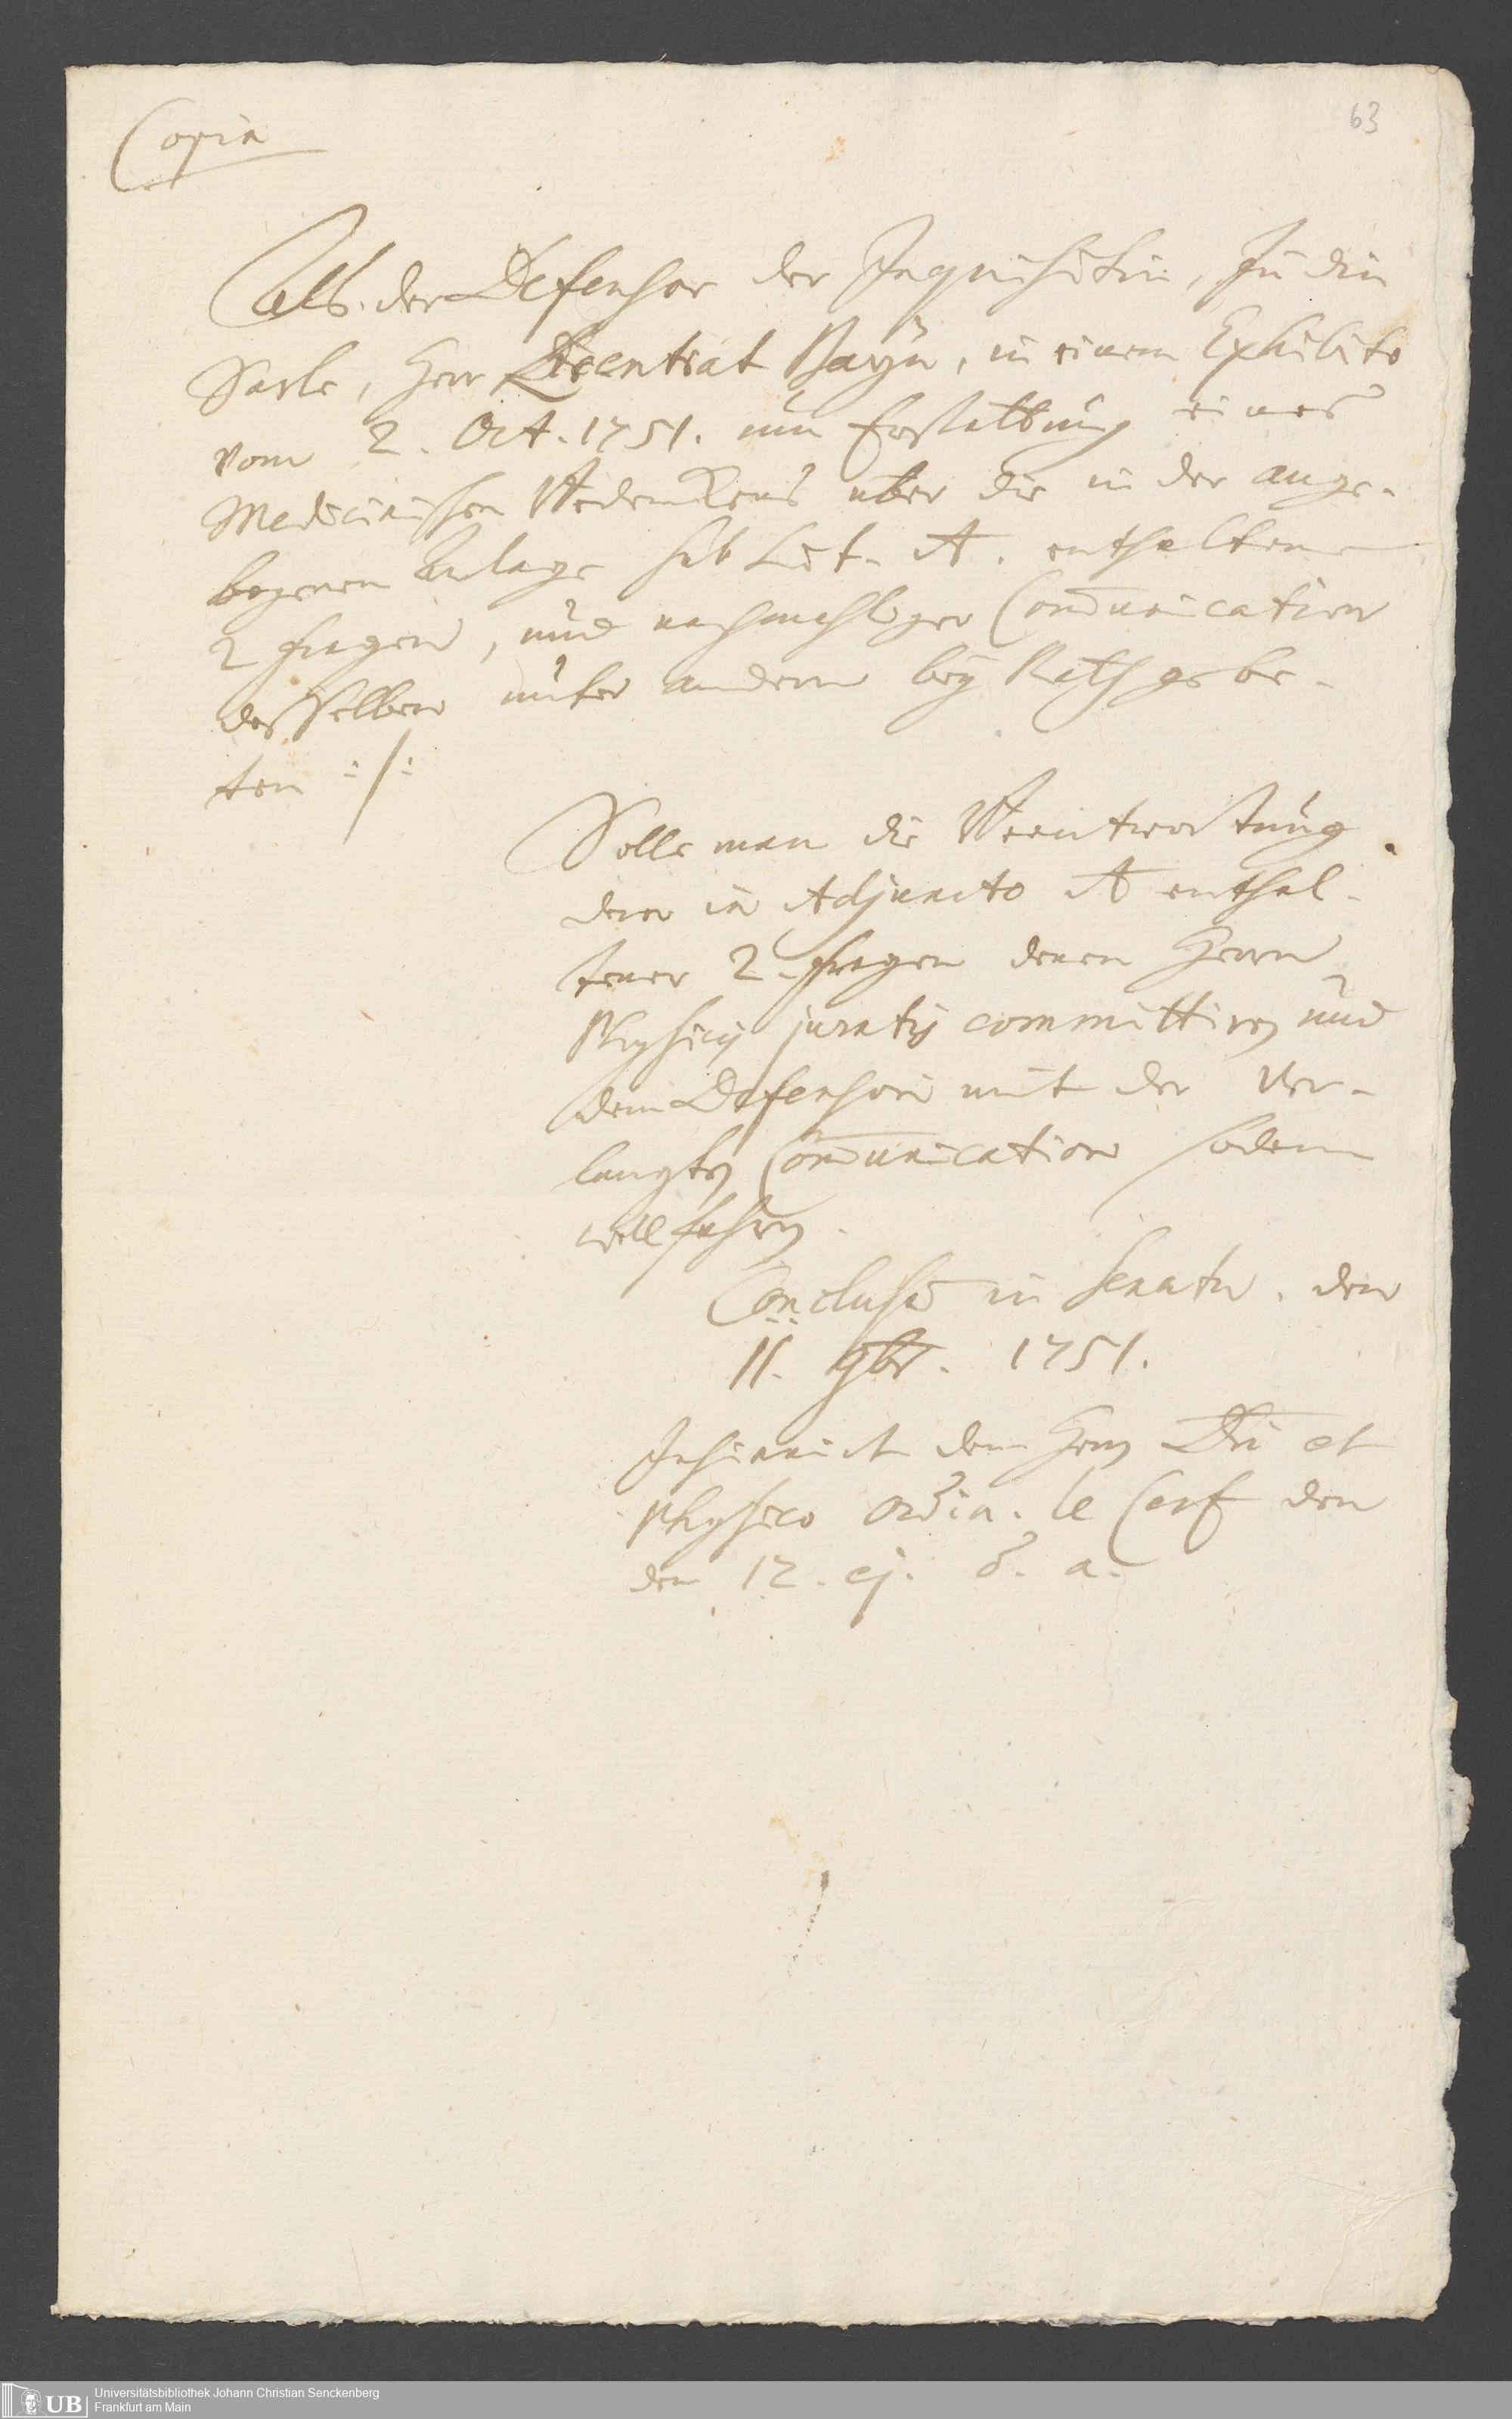 63
Copia
Als der Defensor der Inquisitin, Jüdin
Sarle, Herr Licentiat Bayn, in einem Exhibito
vom 2. Oct. 1751. um Erstattung eines
Medicinischen Bedenckens über die in der ange-
bogenen Anlage sub Lit. A. enthaltene
2 fragen, und nachmahliger Com̄unication
desselben unter andern bey Rath gebe-
ten :/:
Solle man die Beantwortung
derer in Adjuncto A enthal-
tener 2. fragen denen Herrn
Physicis juratis committiren und
dem Defensori mit der ver-
langten Com̄unication sodann
willfahren.
Conclusū in Senatu. den
11. 9br. 1751.
Insinuirt dem Herrn Dri et
Physico Ordin. le Cerf den
den 12. ej. & a.
UB
Universitätsbibliothek Johann Christian Senckenberg
Frankfurt am Main